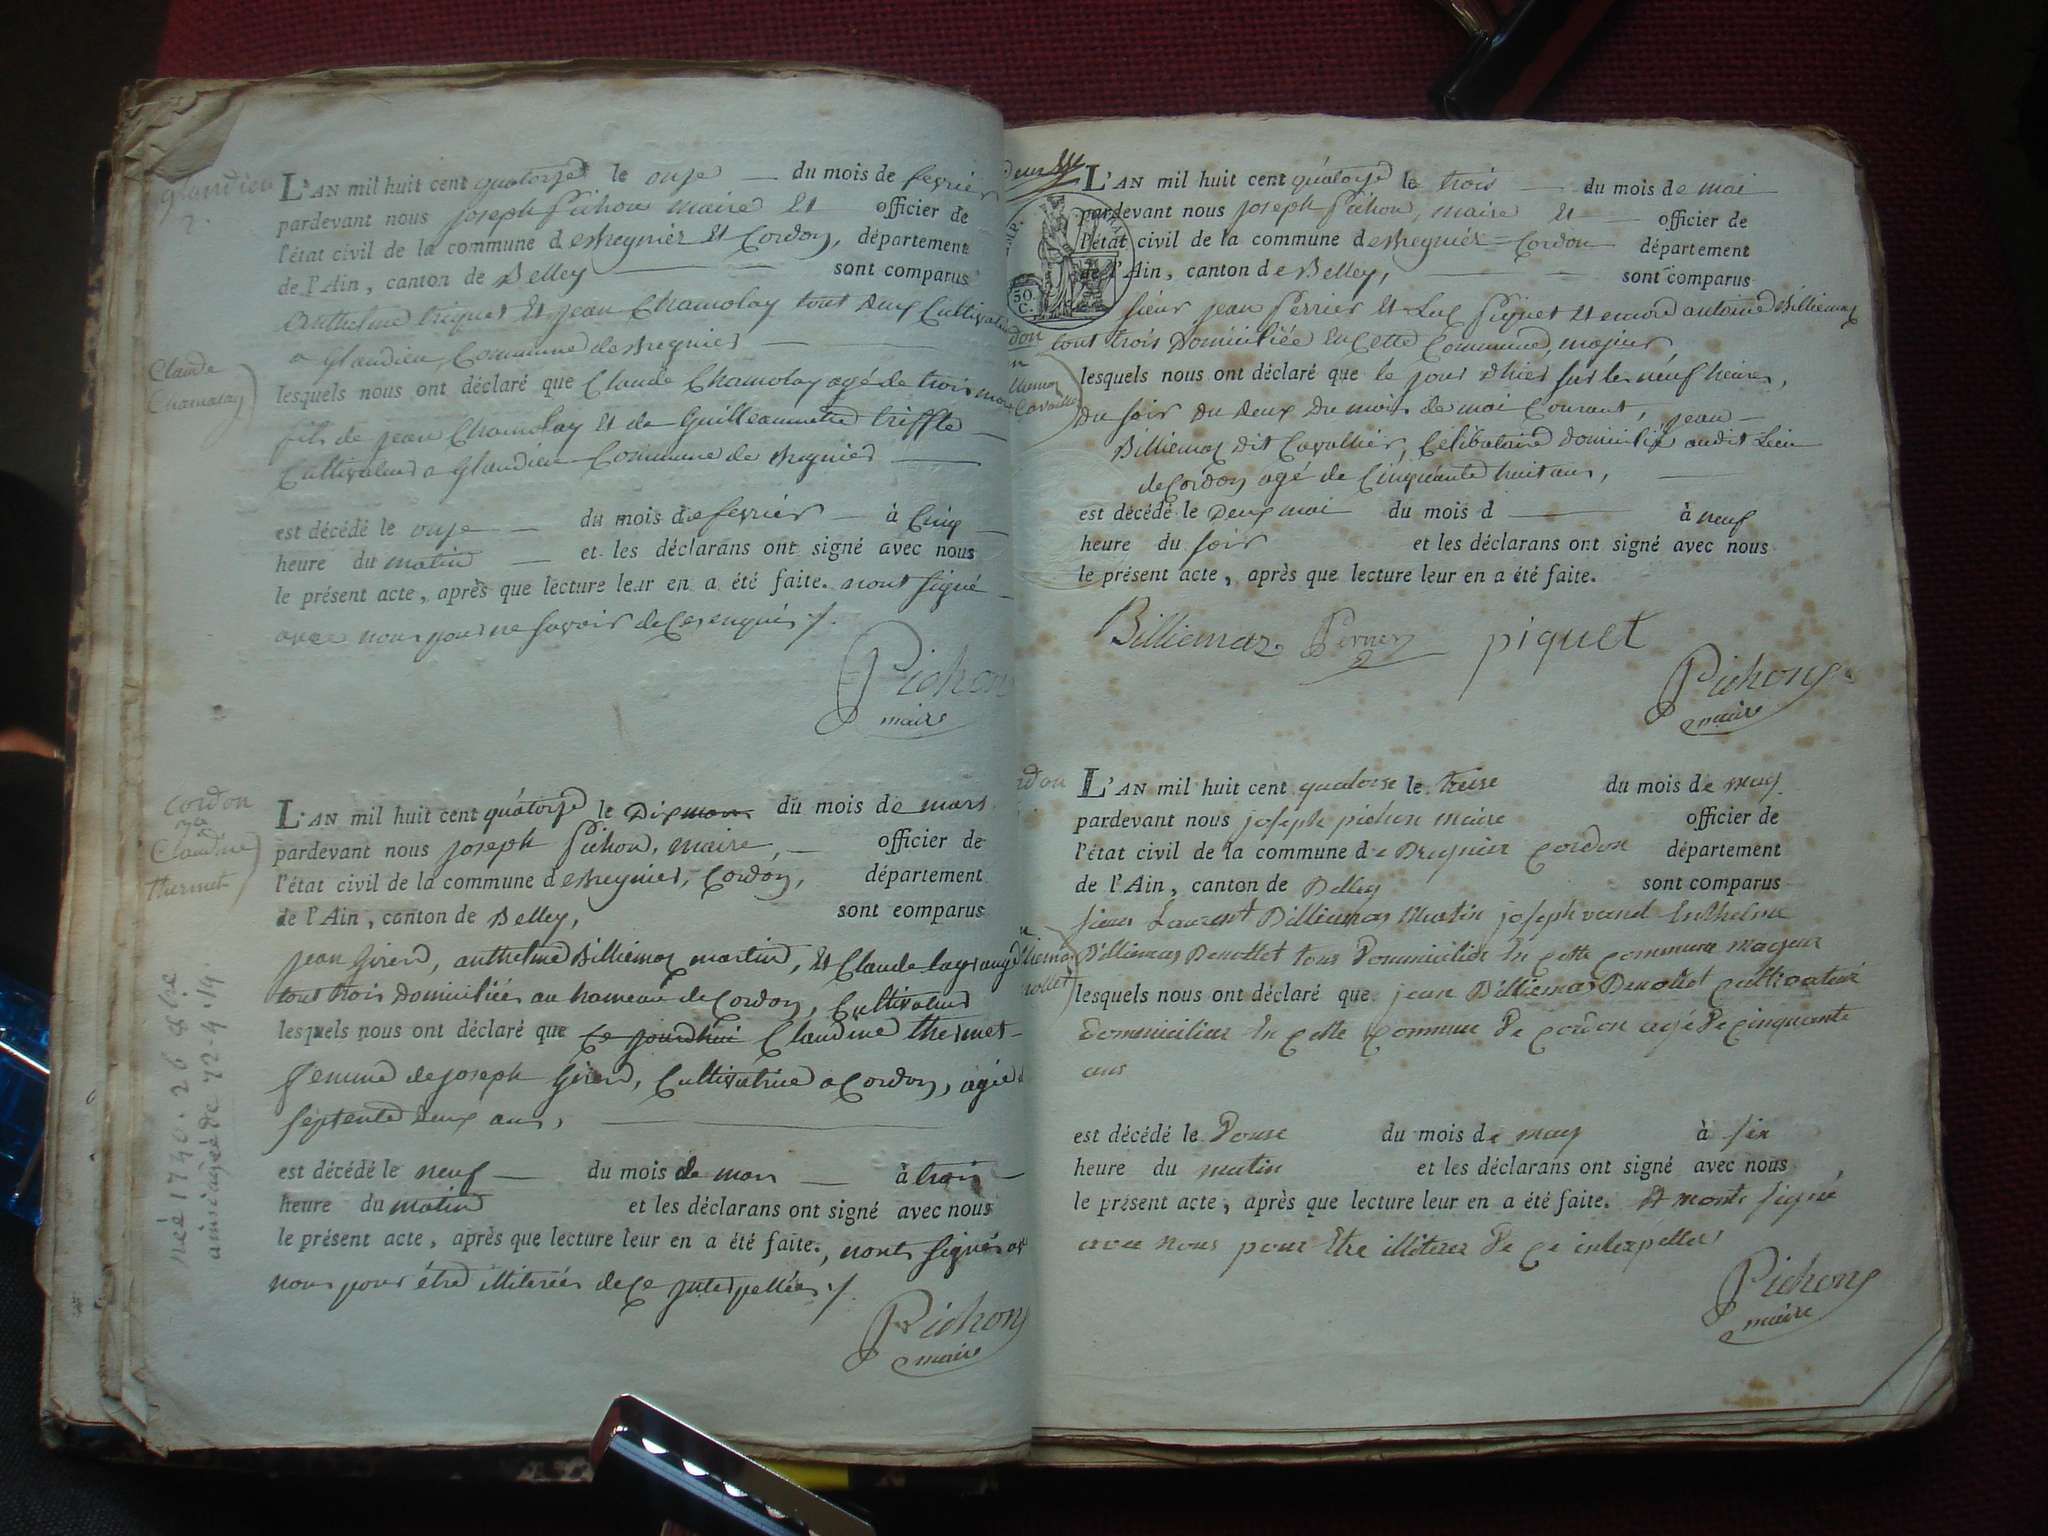 glandieu
2.
L'AN mil huit cent quatorze le onze du mois de fevrier
pardevant nous joseph pichon maire Et officier de
l'état civil de la commune de Bregnier Et Cordon, département
de l'Ain, canton de Belley sont comparus
Anthelme triquet Et jean Chamolay tout deux Cultivateur
a glandieu, Commune de Bregnier
Claude
Chamolay
lesquels nous ont déclaré que Claude Chamolay agé de trois mois
fils de jean Chamolay Et de Guilleaumette triffle
Cultivateurs a glandieu Commune de Bregnier
est décédé le onze du mois de fevrier à Cinq
heure du matin et les déclarans ont signé avec nous
le présent acte, après que lecture leur en a été faite. nont signé
avec nous pour ne savoir de Ces enquis ./.
Pichon
maire
Cordon
3e
Claudine
thermet
L'AN mil huit cent quatorze le Dix mars du mois de mars
pardevant nous joseph pichon, maire, officier de
l'état civil de la commune de Bregnier, Cordon, département
de l'Ain, canton de Belley, sont comparus
jean Girerd, anthelme Billiemaz martin, Et Claude lagrange
tout trois Domiciliés au hameau de Cordon, Cultivateurs
lesquels nous ont déclaré que Ce jourdhui Claudine thermet
femme de joseph Girerd, Cultivatrice a Cordon, agée de
septente deux ans,
est décédé le neuf du mois de mars à trois
heure du matin et les déclarans ont signé avec nous
le présent acte, après que lecture leur en a été faite., nont signés avec
nous pour être illiterés de Ce interpellées ./.
Pichon
maire
née 1740. 26 8bre
ainsi agée de 72-4-14
L'AN mil huit cent quatorze le trois du mois de mai
pardevant nous joseph pichon, maire Et officier de
l'état civil de la commune de Bregnier = Cordon département
de l'Ain, canton de Belley, sont comparus
50.
C.
sieur jean perrier Et Luc piquet Et encore antoine Billiemaz
tout trois Domiciliée En Cette Commune, majeur
lesquels nous ont déclaré que le jour d'hier sur les neuf heures,
du soir du deux du mois de mai Courant, jean
Billiemaz dit Cavallier, Célibataire domicilié audit Lieu
de Cordon agé de Cinquante huit ans,
est décédé le Deux mai du mois d à neuf
heure du soir et les déclarans ont signé avec nous
le présent acte, après que lecture leur en a été faite.
Billiemaz Perrier piquet
Pichon
maire
L'AN mil huit cent quatorse le treise du mois de may
pardevant nous joseph pichon maire officier de
l'état civil de la commune de Bregnier Cordon département
de l'Ain, canton de Belley sont comparus
sieur Laurent Billiemas Martin joseph Enthelme
Billiemas Benottet tous Domicilier En cette commune majeur
lesquels nous ont déclaré que jean Billiemas Benottet cultivateur
Domicilier En cette commune De cordon agé De cinquante
ans
est décédé le Douse du mois de may à six
heure du matin et les déclarans ont signé avec nous
le présent acte, après que lecture leur en a été faite. Et nont signé
avec nous pour Etre illiterer De ce interpeller
Pichon
maire